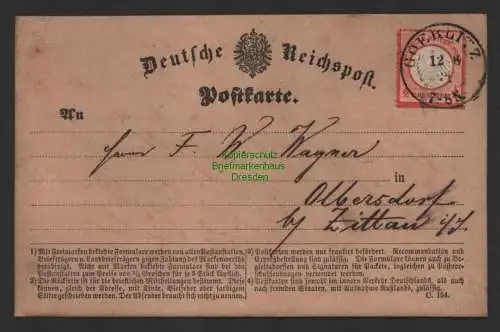 Deutsche Reichspost.
Postkarte.
GOERLITZ
12 8
7-8N
An
Herrn F. W. Wagner
in
Olbersdorf
b/ Zittau
Kopierschutz
Briefmarkenhaus
Dresden
1) Mit Freimarken beklebte Formulare werden von allen Postanstalten,
Briefträgern u. Landbriefträgern gegen Zahlung des Markenwerths
verabreicht. Nicht mit Marken beklebte Formulare können bei den
Postanstalten zum Preise von
für 5 Stück bezogen
2) Die Rückseite ist für die brieflichen Mittheilungen bestimmt. Diese
können, gleich der Adresse, mit Tinte, Bleifeder oder farbigem
Stifte geschrieben werden. Der Absender braucht sich nicht zu nennen.
3) Postkarten werden nur frankirt befördert. Recommandation und
Expreßbestellung sind zulässig. Die Formulare können auch zu
4) Postkarten sind im innern Verkehr Deutschlands, als auch
nach fremden Staaten, mit Ausnahme Rußlands, zulässig.
C. 154.